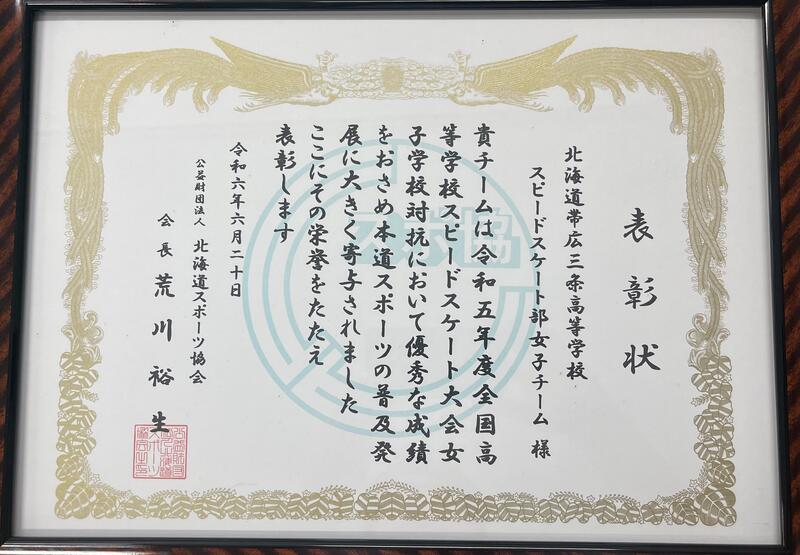 表彰状
北海道帯広三条高等学校
スピードスケート部女子チーム 様
貴チームは令和五年度全国高
等学校スピードスケート大会女
子学校対抗において優秀な成績
をおさめ本道スポーツの普及発
展に大きく寄与されました
ここにその栄誉をたたえ
表彰します
令和六年六月二十日
公益財団法人 北海道スポーツ協会
会長 荒川裕生
スポ協